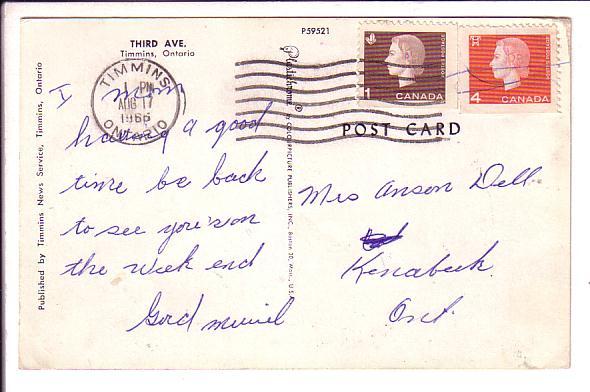 THIRD AVE.
Timmins, Ontario
P59521
TIMMINS
PM
AUG 17
1966
ONTARIO
1
CANADA
4
CANADA
POST CARD
Published by Timmins News Service, Timmins, Ontario
Plastichrome ® by COLOURPICTURE PUBLISHERS, INC., Boston 30, Mass., U.S.A.
I
having a good
time be back
to see you's on
the week end
Gord muriel
Mrs Anson Dell
Kenabeek
Ont.